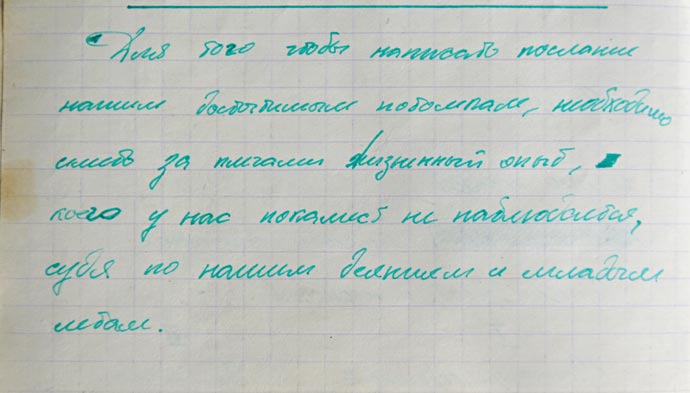 Для того чтобы написать послание
нашим достопочтимым потомкам, необходимо
иметь за плечами жизненный опыт,
коего у нас покамест не наблюдается,
судя по нашим деяниям и младым
летам.